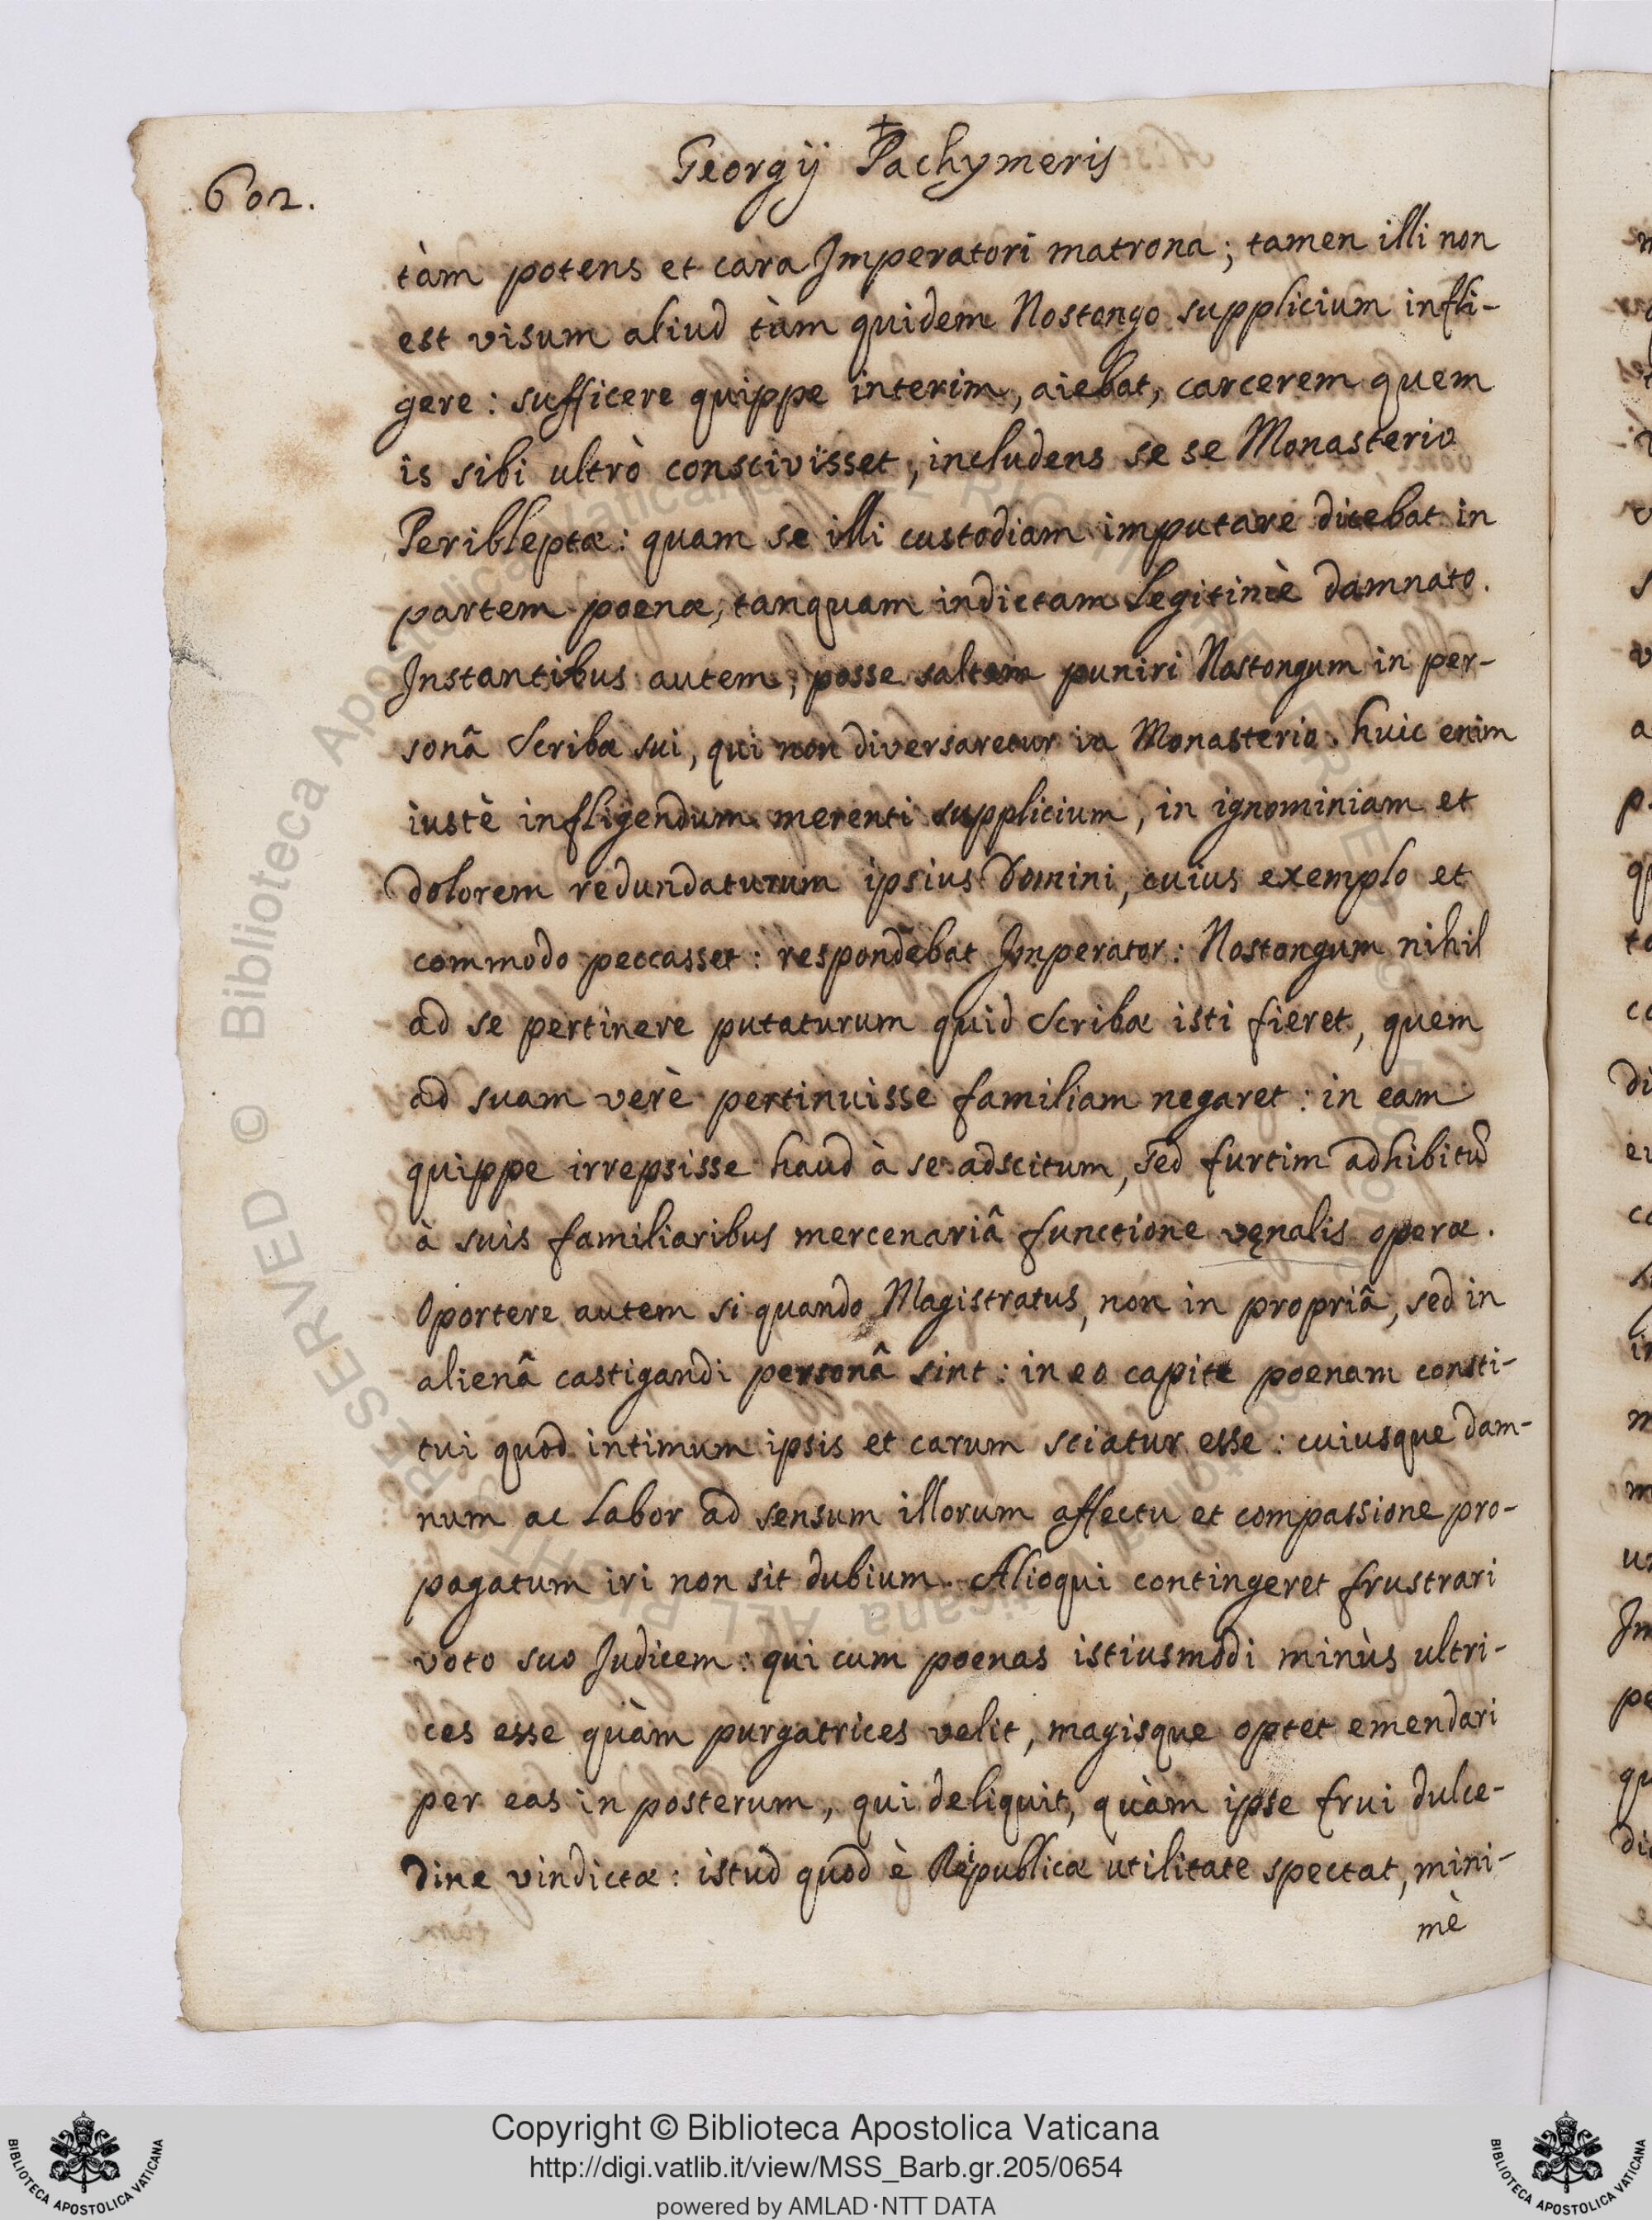 602.
Georgij Pachymeris
tàm potens et cara Imperatori matrona; tamen illi non
est visum aliud tùm quidem Nostongo supplicium infli-
gere: sufficere quippe interim, aiebat, carcerem quem
is sibi ultrò conscivisset, includens se se Monasterio
Peribleptæ: quam se illi custodiam imputare dicebat in
partem poenæ, tanquam indictam legitimè damnato.
Instantibus autem, posse saltem puniri Nostongum in per-
sonâ Scribæ sui, qui non diversaretur in Monasterio. huic enim
iustè infligendum merenti supplicium, in ignominiam et
dolorem redundaturum ipsius Domini, cuius exemplo et
commodo peccasset: respondebat Imperator: Nostongum nihil
ad se pertinere putaturum quid Scribæ isti fieret, quem
ad suam verè pertinuisse familiam negaret: in eam
quippe irrepsisse haud à se adscitum, sed furtim adhibitū
à suis familiaribus mercenariâ functione venalis operæ.
Oportere autem si quando Magistratus, non in propriâ, sed in
alienâ castigandi personâ sint: in eo capite poenam consti-
tui quod intimum ipsis et carum sciatur esse: cuiusque dam-
num ac labor ad sensum illorum affectu et compassione pro-
pagatum iri non sit dubium. Alioqui contingeret frustrari
voto suo Judicem: qui cum poenas istiusmodi minùs ultri-
ces esse quàm purgatrices velit, magisque optet emendari
per eas in posterum, qui deliquit, quàm ipse frui dulce-
dine vindictæ: istud quod è Reipublicæ utilitate spectat, mini-
mè
© Biblioteca Apostolica Vaticana ALL RIGHTS RESERVED
Copyright © Biblioteca Apostolica Vaticana
http://digi.vatlib.it/view/MSS_Barb.gr.205/0654
powered by AMLAD·NTT DATA
BIBLIOTECA APOSTOLICA VATICANA
BIBLIOTECA APOSTOLICA VATICANA